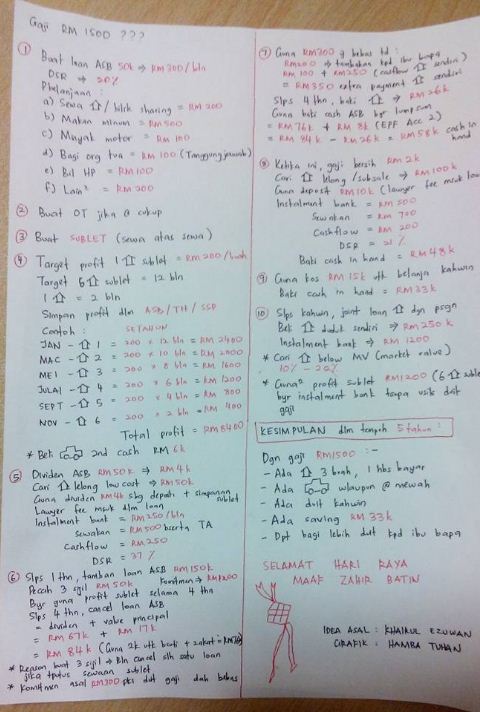 Gaji RM 1500 ???
① Buat loan ASB 50k ⇒ RM300/bln
DSR ⇒ 20%
Pbelanjaan :
a) Sewa / bilik sharing = RM 200
b) Makan minum = RM500
c) Minyak motor = RM 100
d) Bagi org tua = RM 100 (Tanggungjawab)
e) Bil HP = RM100
f) Lain² = RM 200
② Buat OT jika @ cukup
③ Buat SUBLET (sewa atas sewa)
④ Target profit 1 sublet = RM 200/buah
Target 6 sublet = 12 bln
1 = 2 bln
Simpan profit dlm ASB/TH/SSP
Contoh : SETAHUN
JAN - 1 = 200 x 12 bln = RM 2400
MAC - 2 = 200 x 10 bln = RM 2000
MEI - 3 = 200 x 8 bln = RM 1600
JULAI - 4 = 200 x 6 bln = RM 1200
SEPT - 5 = 200 x 4 bln = RM 800
NOV - 6 = 200 x 2 bln = RM 400
Total profit = RM8400
* Beli 2nd cash RM 6k
⑤ Dividen ASB RM50k ⇒ RM 4k
Cari lelong low cost ⇒ RM50k
Guna dividen RM4k sbg deposit + simpanan sublet
Lawyer fee msuk dlm loan
Instalment bank = RM250/bln
Sewakan = RM500 bserta TA
Cashflow = RM250
DSR = 37 %
⑥ Slps 1 thn, tambah loan ASB RM150k
Pecah 3 sijil RM50k Komitmen ⇒ RM1200
Byr guna profit sublet selama 4 thn
Slps 4 thn, cancel loan ASB
= dividen + value principal
= RM 67k + RM 17k
= RM 84k (Guna 2k utk + zakat
* Reason buat 3 sijil ⇒ Bln cancel slh satu loan
jika tputus sewaan sublet
* Komitmen asal RM300 dut gaji dah bebas
⑦ Guna RM300 yg bebas td :
RM200 ⇒ tambahan kpd ibu bapa
RM 100 + RM250 (cashflow sendiri)
= RM350 extra payment sendiri
Slps 4 thn, baki ⇒ RM26k
Guna baki cash ASB byr lumpsum
= RM76k + RM 8k (EPF Acc 2)
= RM 84k - RM26k = RM58k cash in hand
⑧ Ketika ini, gaji bersih RM 2k
Cari lelong/subsale ⇒ RM100k
Guna deposit RM10k (lawyer fee msuk
Instalment bank = RM 500
Sewakan = RM 700
Cashflow = RM 200
DSR = 21 %
Baki cash in hand = RM48k
⑨ Guna kos RM 15k utk belanja kahwin
Baki cash in hand = RM33k
⑩ Slps kahwin, joint loan dgn psgn
Beli duduk sendiri ⇒ RM250k
Instalment bank ⇒ RM 1200
* Cari below MV (market value)
10% - 20%
* Guna² profit sublet RM1200 (6 sublet)
byr instalment bank tanpa usik dut
gaji
KESIMPULAN dlm tempoh 5 tahun :
Dgn gaji RM1500 :-
- Ada 3 buah, 1 hbs bayar
- Ada walaupun @ mewah
- Ada duit kahwin
- Ada saving RM 33k
- Dpt bagi lebih dut kpd ibu bapa
SELAMAT HARI RAYA
MAAF ZAHIR BATIN
IDEA ASAL : KHAIRUL EZUWAN
GRAFIK : HAMBA TUHAN